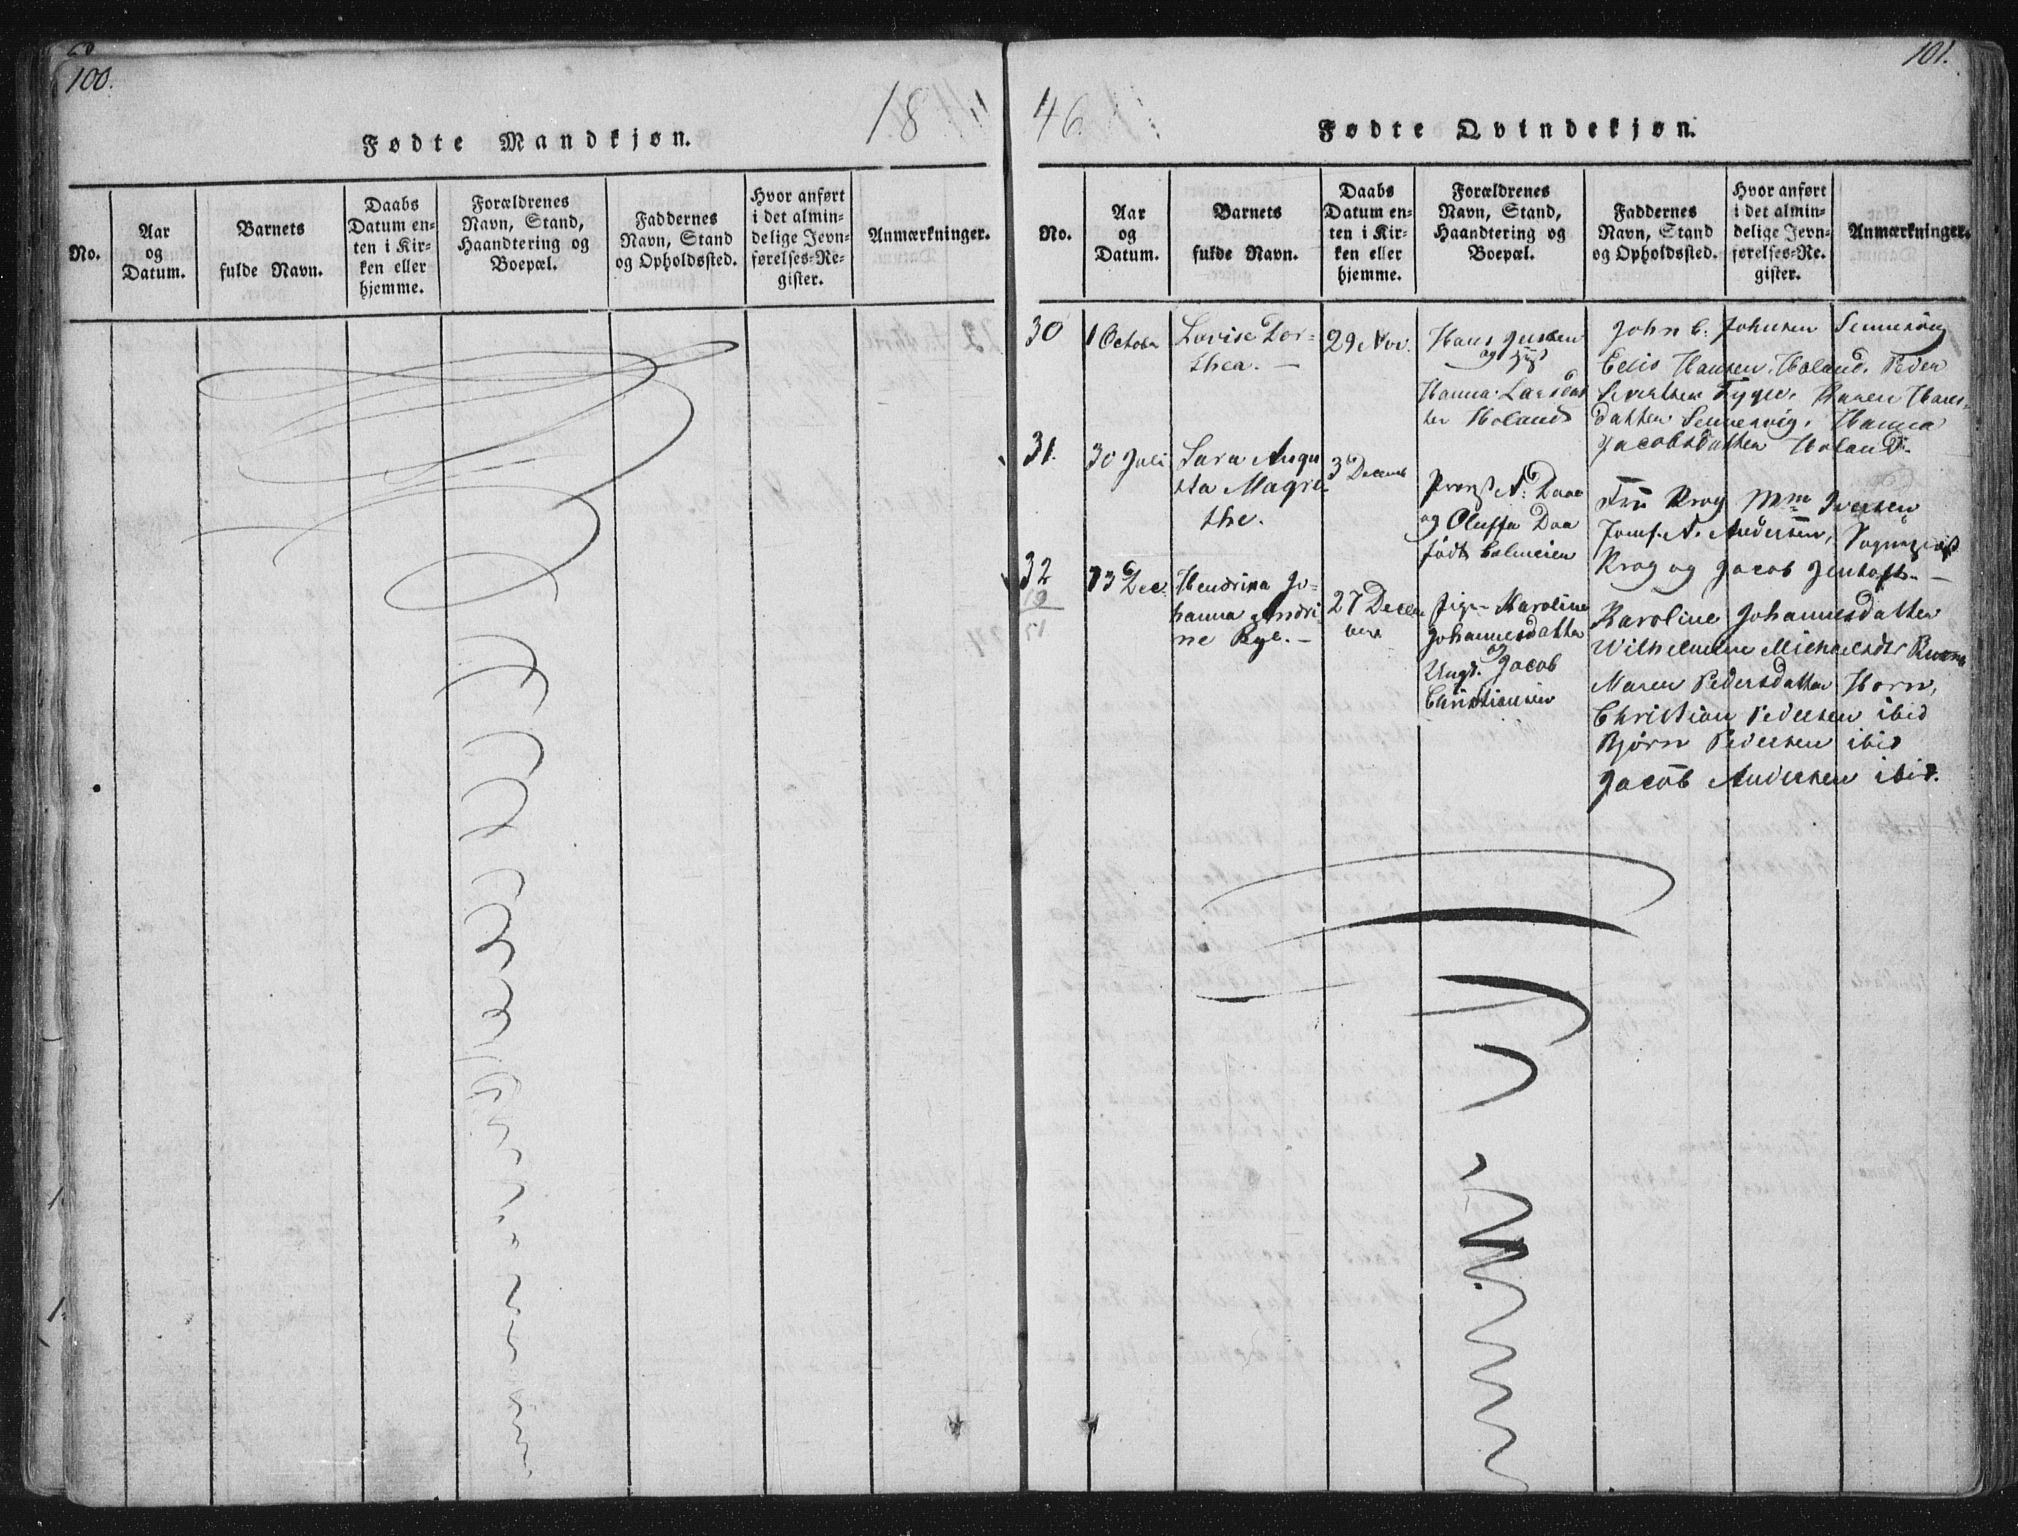 100.
18
46.
101.
Fødte Mandkjøn.
Fødte Qvindekjøn.
No.
Aar
og
Datum.
Barnets
fulde Navn.
Daabs
Datum en-
ten i Kir-
ken eller
hjemme.
Forældrenes
Navn, Stand,
Haandtering og
Boepæl.
Faddernes
Navn, Stand
og Opholdssted.
Hvor anført
i det almin-
delige Jevn-
førelses-Re-
gister.
Anmærkninger.
No.
Aar
og
Datum.
Barnets
fulde Navn.
Daabs
Datum en-
ten i Kir-
ken eller
hjemme.
Forældrenes
Navn, Stand,
Haandtering og
Boepæl.
Faddernes
Navn, Stand
og Opholdssted.
Hvor anført
i det almin-
delige Jevn-
førelses-Re-
gister.
Anmærkninger.
30
1 October
Lovise Dor-
thea. —
29 Nov.
Hans Jensen
og
Hanna Larsdat
ter Holand
John C. Johnsen Sennesvig
Hansen, Holand, Peder
Sivertsen Karen Hans-
datter Sennesvig, Hanna
Jacobsdatter Holand.
31.
30 Juli
Sara Augu
sta Magre-
the.
3 Decemb
Provst N. Daae
og Oluffa Daa
født
Fru Krog Mm Iversen
Jomf. N. Andersen,
Krog og Jacob Jentoft. —
32
19
51
13 Dec.
Hendrika Jo-
hanna Andri-
ne —
27 Decem
ber
Pige Karoline
Johannesdatter
og
Ungk. Jacob
Christiansen
Karoline Johannesdatter
Wilhelmine
Maren Pedersdatter Horn,
Christian Pedersen ibid
Bjørn Pedersen ibid
Jacob Andersen ibid.